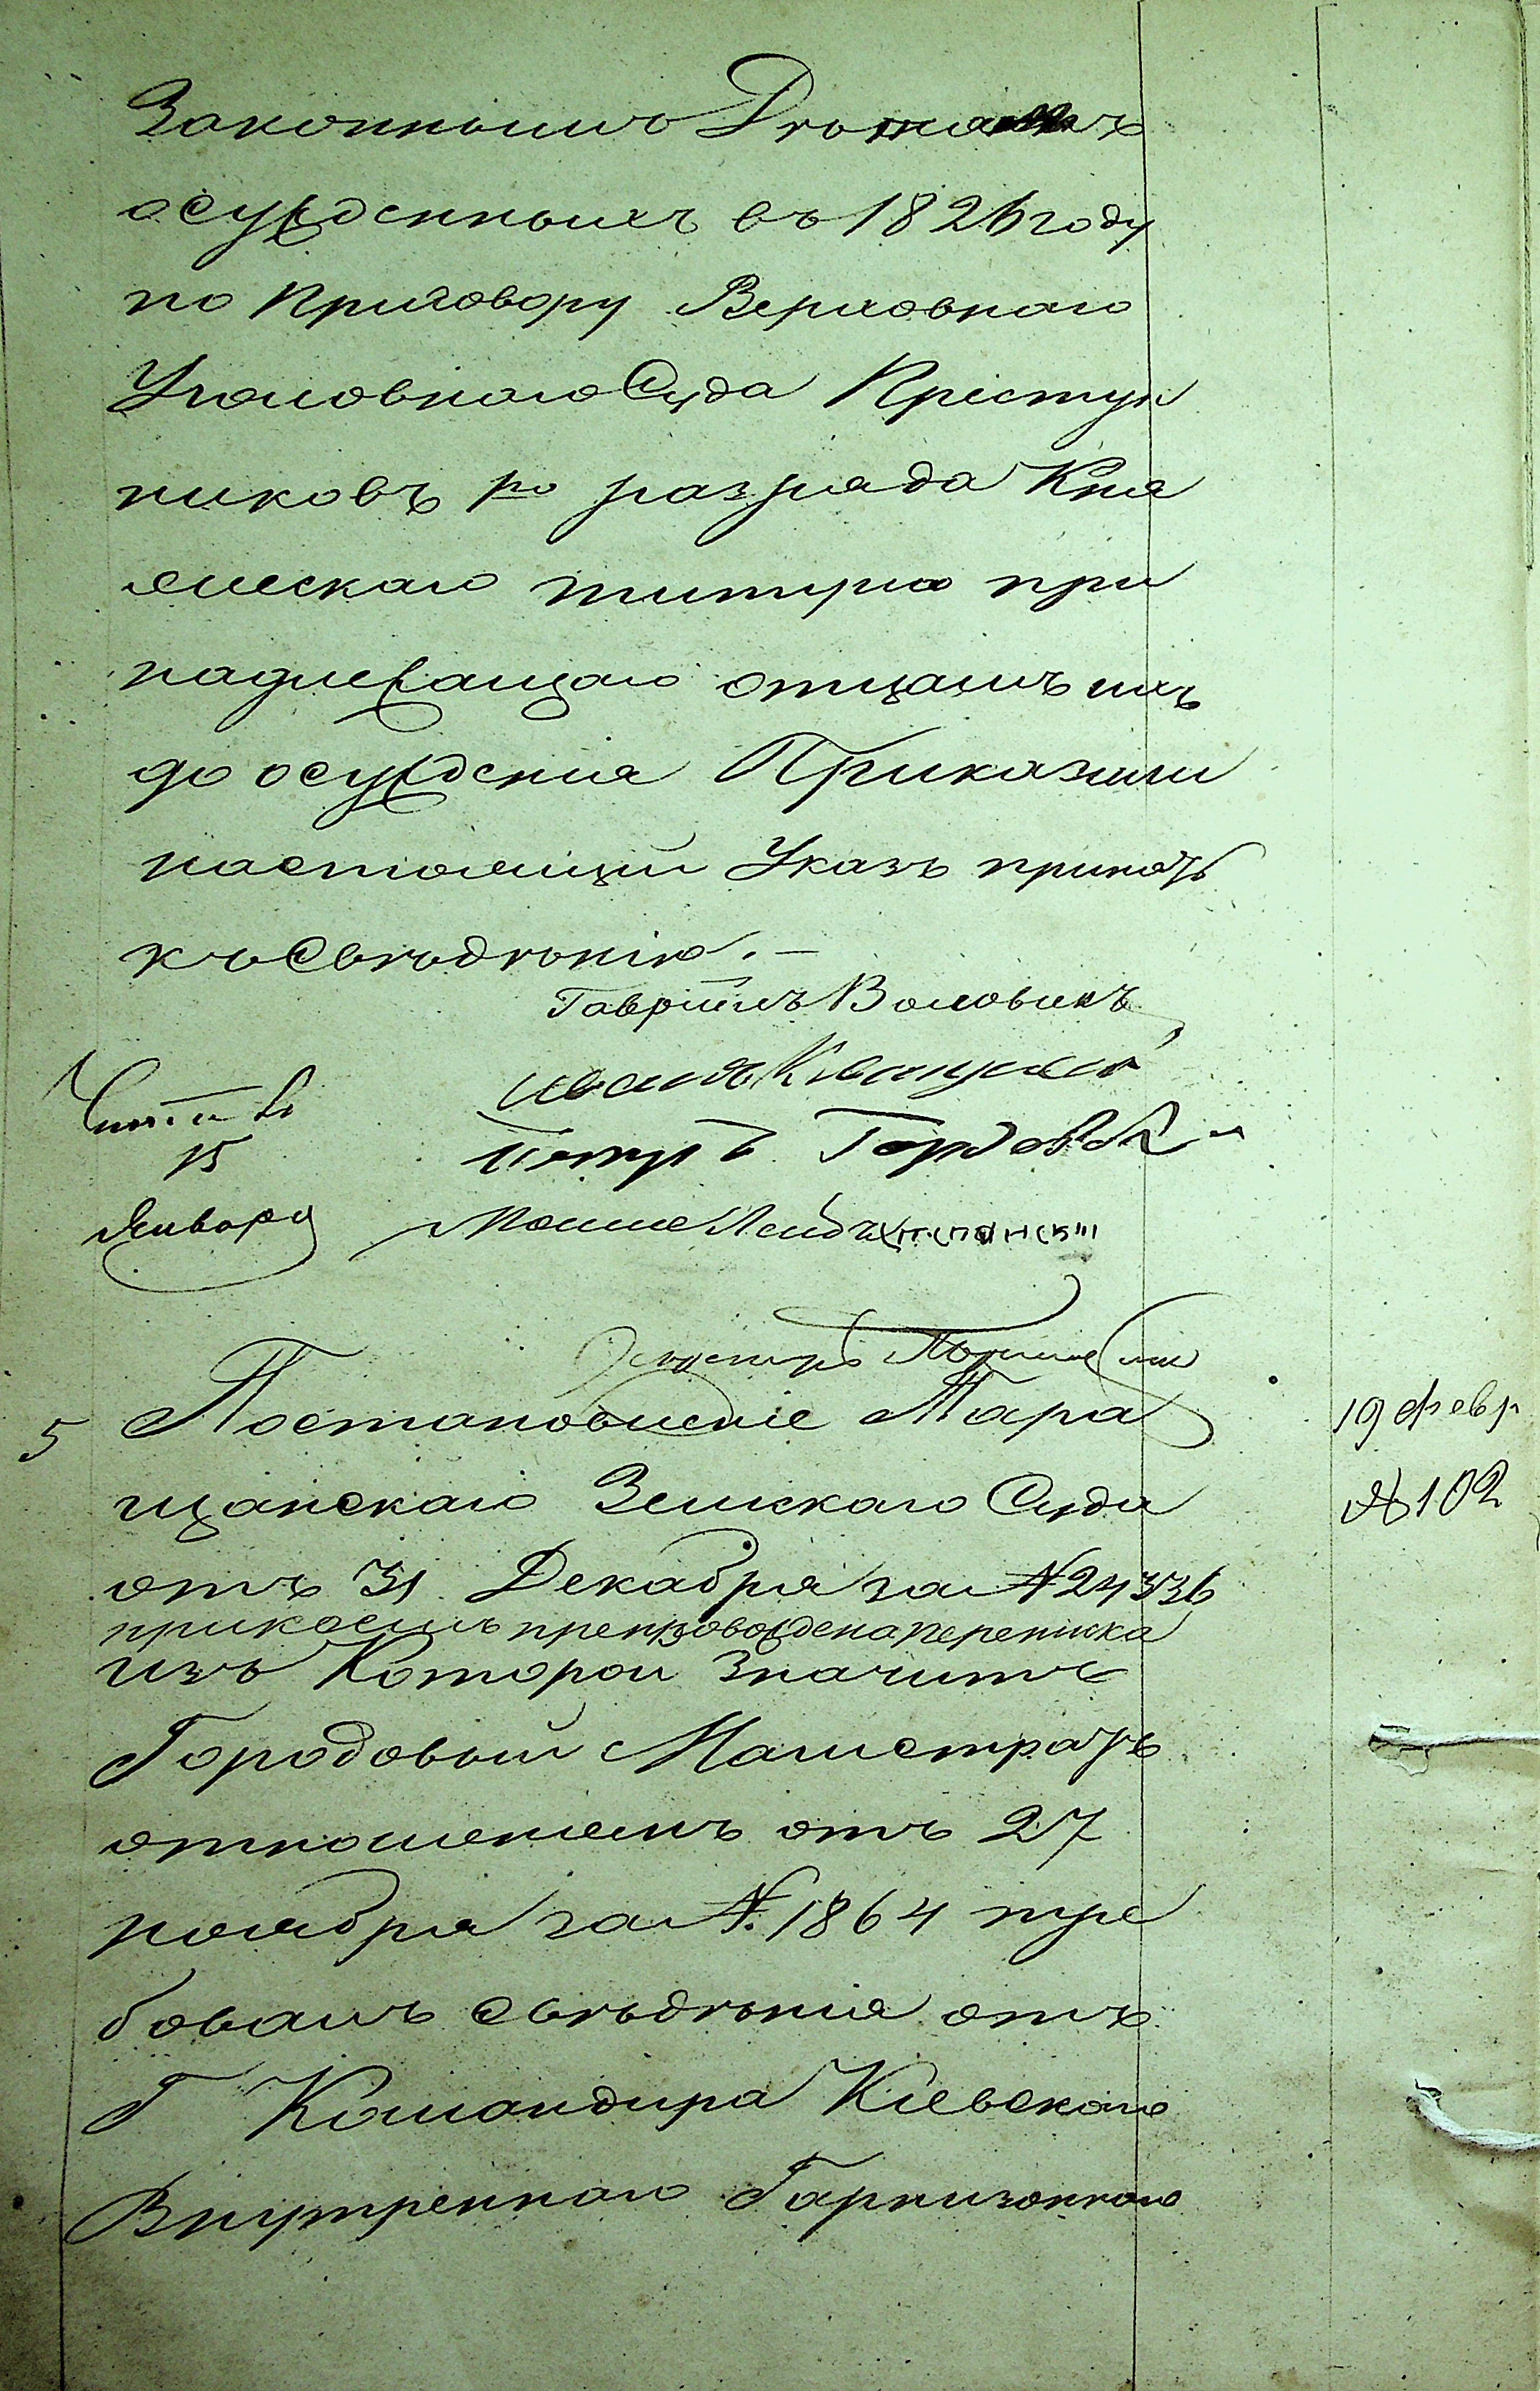 Законнымъ Дѣтямъ
осужденныхъ въ 1826 году
по Приговору Верховнаго
Уголовнаго Суда Прѣступ
никовъ го разряда Кня
жескаго титула при
надлежащаго отцамъ ихъ
до осужденія Приказали
настоящій Указъ принять
къ Свѣдѣнію. —
Гавріилъ Воловикъ
Иванъ
15 Петръ
Января Мошко Лейбъ
5 Постановленіе Тара
19 февр
щанскаго Земскаго Суда
№ 102
отъ 31 Декабря за № 24336
при коемъ препровождена переписка
изъ Которой Значитъ
Городовый Магистратъ
отношеніемъ отъ 27
ноября за №. 1864 тре
бовалъ свѣдѣнія отъ
Г Командира Кіевскаго
Внутреннаго Гарнизоннаго